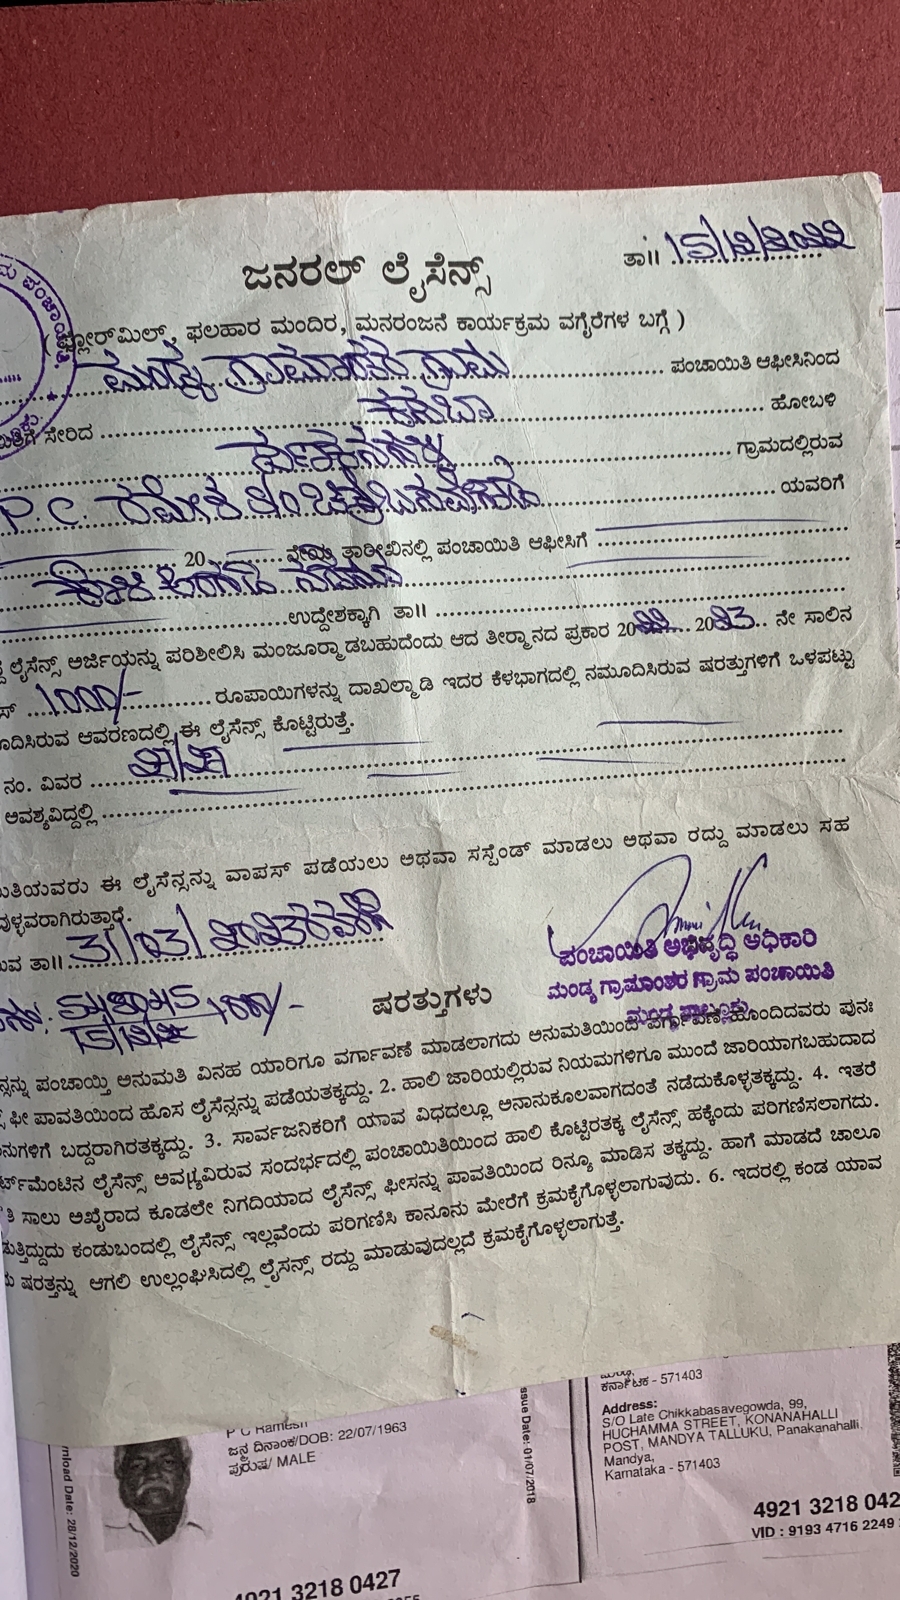 ತಾ॥ 15/12/2022
ಜನರಲ್ ಲೈಸೆನ್ಸ್
ಫ್ಲೋರ್‌ಮಿಲ್ಸ್, ಫಲಹಾರ ಮಂದಿರ, ಮನರಂಜನೆ ಕಾರ್ಯಕ್ರಮ ವಗೈರೆಗಳ ಬಗ್ಗೆ )
ಮಂಡ್ಯ ಗ್ರಾಮಾಂತರ ಗ್ರಾಮ ಪಂಚಾಯಿತಿ ಆಫೀಸಿನಿಂದ
ಸೇರಿದ ಕಸಬಾ ಹೋಬಳಿ
ಗ್ರಾಮದಲ್ಲಿರುವ
P.C. ರಮೇಶ ಯವರಿಗೆ
20 ನೇಯ ತಾರೀಖಿನಲ್ಲಿ ಪಂಚಾಯಿತಿ ಆಫೀಸಿಗೆ
ಕೋಳಿ ಅಂಗಡಿ ನಡೆಸುವ
ಉದ್ದೇಶಕ್ಕಾಗಿ ತಾ॥
ಲೈಸೆನ್ಸ್ ಅರ್ಜಿಯನ್ನು ಪರಿಶೀಲಿಸಿ ಮಂಜೂರ್ಮಾಡಬಹುದೆಂದು ಆದ ತೀರ್ಮಾನದ ಪ್ರಕಾರ 2022 2023 ನೇ ಸಾಲಿನ
1000/- ರೂಪಾಯಿಗಳನ್ನು ದಾಖಲ್ಮಾಡಿ ಇದರ ಕೆಳಭಾಗದಲ್ಲಿ ನಮೂದಿಸಿರುವ ಷರತ್ತುಗಳಿಗೆ ಒಳಪಟ್ಟು
ಆವರಣದಲ್ಲಿ ಈ ಲೈಸೆನ್ಸ್ ಕೊಟ್ಟಿರುತ್ತೆ.
ನಂ. ವಿವರ
ಅವಶ್ಯವಿದ್ದಲ್ಲಿ
ಈ ಲೈಸೆನ್ಸನ್ನು ವಾಪಸ್ ಪಡೆಯಲು ಅಥವಾ ಸಸ್ಪೆಂಡ್ ಮಾಡಲು ಅಥವಾ ರದ್ದು ಮಾಡಲು ಸಹ
ತಾ॥ 31/03/2023ರವರೆಗೆ
ಪಂಚಾಯಿತಿ ಅಭಿವೃದ್ಧಿ ಅಧಿಕಾರಿ
ಮಂಡ್ಯ ಗ್ರಾಮಾಂತರ ಗ್ರಾಮ ಪಂಚಾಯಿತಿ
ಮಂಡ್ಯ ತಾಲ್ಲೂಕು
ಷರತ್ತುಗಳು
ಪಂಚಾಯ್ತಿ ಅನುಮತಿ ವಿನಹ ಯಾರಿಗೂ ವರ್ಗಾವಣೆ ಮಾಡಲಾಗದು ಅನುಮತಿಯಿಂದ ವರ್ಗಾವಣೆ ಹೊಂದಿದವರು ಪುನಃ
ಫೀ ಪಾವತಿಯಿಂದ ಹೊಸ ಲೈಸೆನ್ಸನ್ನು ಪಡೆಯತಕ್ಕದ್ದು. 2. ಹಾಲಿ ಜಾರಿಯಲ್ಲಿರುವ ನಿಯಮಗಳಿಗೂ ಮುಂದೆ ಜಾರಿಯಾಗಬಹುದಾದ
ಬದ್ದರಾಗಿರತಕ್ಕದ್ದು. 3. ಸಾರ್ವಜನಿಕರಿಗೆ ಯಾವ ವಿಧದಲ್ಲೂ ಅನಾನುಕೂಲವಾಗದಂತೆ ನಡೆದುಕೊಳ್ಳತಕ್ಕದ್ದು. 4. ಇತರೆ
ಲೈಸೆನ್ಸ್ ಅವಶ್ಯವಿರುವ ಸಂದರ್ಭದಲ್ಲಿ ಪಂಚಾಯಿತಿಯಿಂದ ಹಾಲಿ ಕೊಟ್ಟಿರತಕ್ಕ ಲೈಸೆನ್ಸ್ ಹಕ್ಕೆಂದು ಪರಿಗಣಿಸಲಾಗದು.
ಸಾಲು ಅಖೈರಾದ ಕೂಡಲೇ ನಿಗದಿಯಾದ ಲೈಸೆನ್ಸ್ ಫೀಸನ್ನು ಪಾವತಿಯಿಂದ ರಿನ್ಯೂ ಮಾಡಿಸ ತಕ್ಕದ್ದು. ಹಾಗೆ ಮಾಡದೆ ಚಾಲೂ
ಕಂಡುಬಂದಲ್ಲಿ ಲೈಸೆನ್ಸ್ ಇಲ್ಲವೆಂದು ಪರಿಗಣಿಸಿ ಕಾನೂನು ಮೇರೆಗೆ ಕ್ರಮಕೈಗೊಳ್ಳಲಾಗುವುದು. 6. ಇದರಲ್ಲಿ ಕಂಡ ಯಾವ
ಷರತ್ತನ್ನು ಆಗಲಿ ಉಲ್ಲಂಘಿಸಿದಲ್ಲಿ ಲೈಸನ್ಸ್ ರದ್ದು ಮಾಡುವುದಲ್ಲದೆ ಕ್ರಮಕೈಗೊಳ್ಳಲಾಗುತ್ತೆ.
P C Ramesh
ಜನ್ಮ ದಿನಾಂಕ/DOB: 22/07/1963
ಪುರುಷ/ MALE
4921 3218 0427
Download Date: 28/12/2020
Issue Date: 01/07/2018
ಕರ್ನಾಟಕ - 571403
Address:
S/O Late Chikkabasavegowda, 99,
HUCHAMMA STREET, KONANAHALLI
POST, MANDYA TALLUKU, Panakanahalli,
Mandya,
Karnataka - 571403
4921 3218 042
VID : 9193 4716 2249